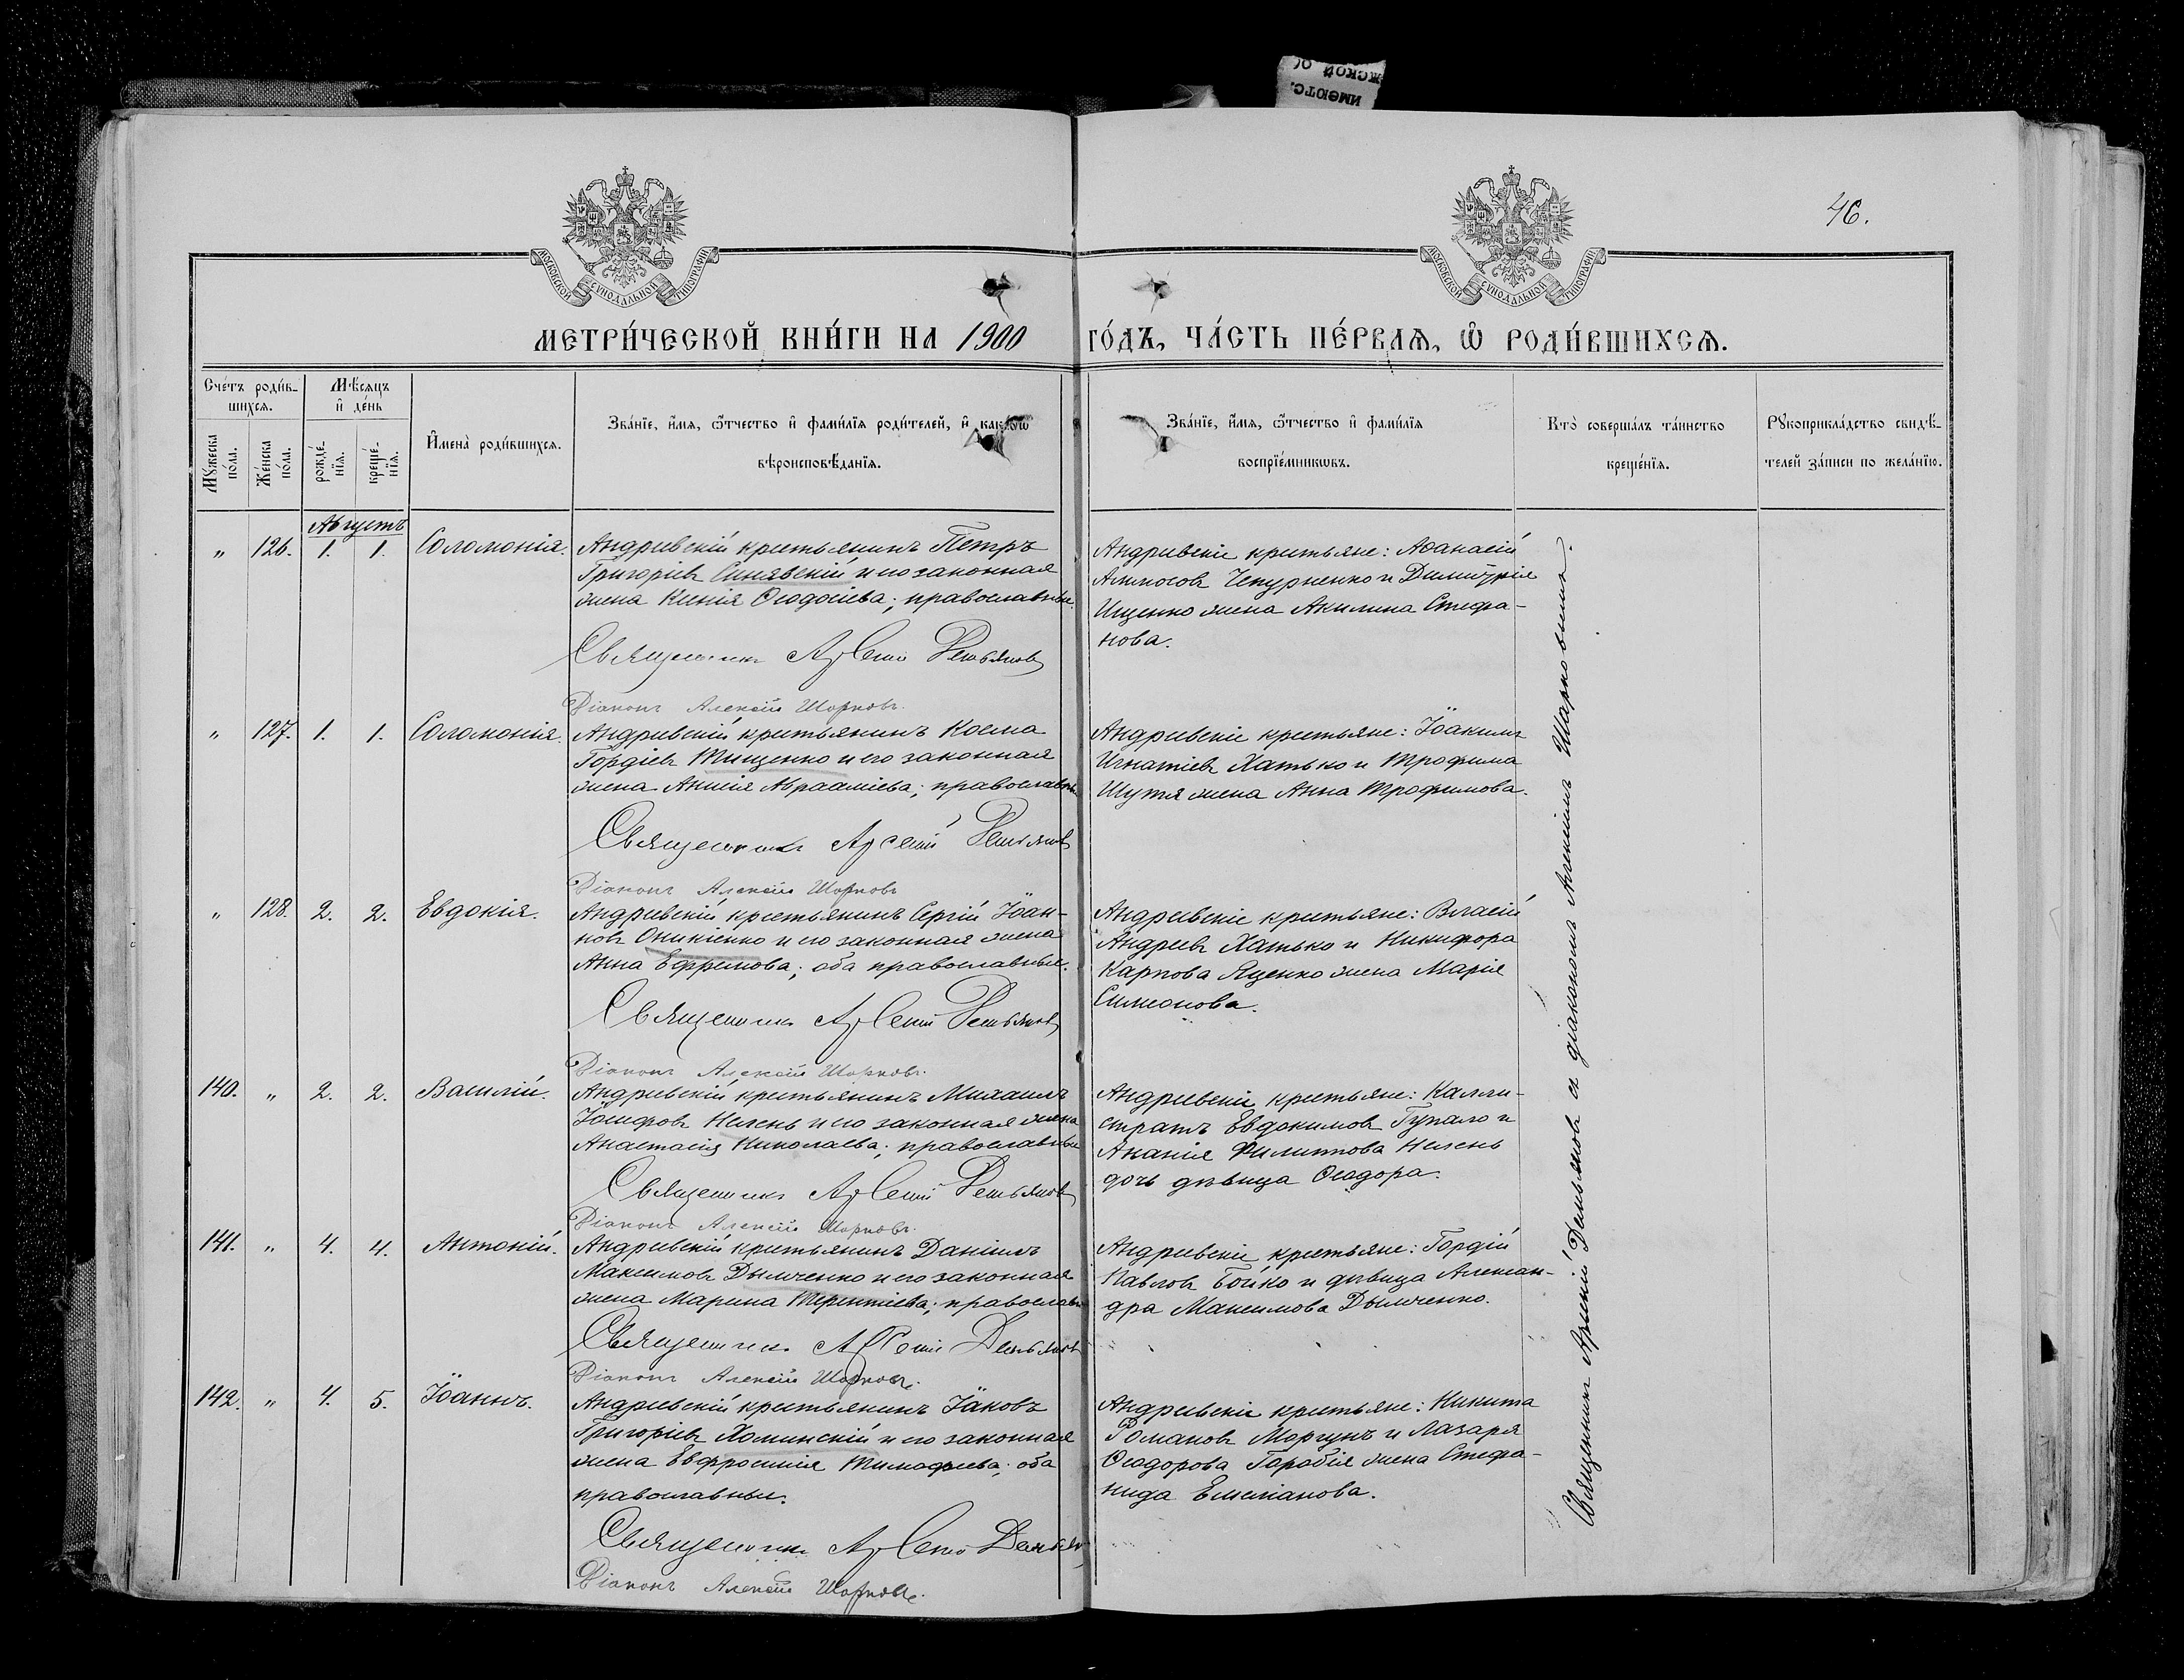 ИМѢЮТС.
46.
МОСКОВСКОЙ СѴНОДАЛЬНОЙ ТИПОГРАФІИ
МОСКОВСКОЙ СѴНОДАЛЬНОЙ ТИПОГРАФІИ
МЕТРИ́ЧЕСКОЙ КНИ́ГИ НА 1900 ГО́ДЪ, ЧА́СТЬ ПЕ́РВАѦ, Ѽ РОДИ́ВШИХСѦ.
Сче́тъ роди́в-
шихсѧ.
Мѣ́сѧцъ
и҆ де́нь
Мꙋ́жеска
по́ла.
Же́нска
по́ла.
рожде́-
нїѧ.
креще́-
нїѧ.
И҆мена̀ роди́вшихсѧ.
Зва́нїе, и҆́мѧ, ѻ҆́тчество и҆ фами́лїѧ роди́телей, и҆ како́гѡ
вѣроисповѣ́данїѧ.
Зва́нїе, и҆́мѧ, ѻ҆́тчество и҆ фами́лїѧ
воспрїе́мникѡвъ.
Кто̀ соверша́лъ та́инство
креще́нїѧ.
Рꙋкоприкла́дство свидѣ́-
телей за́писи по жела́нїю.
Августъ
" 126. 1. 1. Соломонія.
Андреевскій крестьянинъ Петръ
Григоріевъ Синявскій и его законная
жена Ксенія Ѳеодосіева; православные.
Священникъ Арсеній Демьяновъ
Діаконъ Алексій Шарковъ.
Андреевскіе крестьяне: Аѳанасій
Аммосовъ Чепурненко и Димитрія
Ищенко жена Акилина Стефа-
нова.
" 127. 1. 1. Соломонія.
Андреевскій крестьянинъ Косма
Гордіевъ Тищенко и его законная
жена Анисія Авраамiева; православные
Священникъ Арсеній Демьяновъ
Діаконъ Алексій Шарковъ
Андреевскіе крестьяне: Іоакимъ
Игнатіевъ Хатько и Трофима
Шутя жена Анна Трофимова.
" 128. 2. 2. Евдокія.
Андреевскій крестьянинъ Сергій Іоан-
новъ Оникіенко и его законная жена
Анна Ефремова; оба православные.
Священникъ Арсеній Демьяновъ
Діаконъ Алексій Шарковъ.
Андреевскіе крестьяне: Власій
Андреевъ Хатько и Никифора
Карпова Яценко жена Марія
Симеонова.
140. " 2. 2. Василій.
Андреевскій крестьянинъ Михаилъ
Іосифовъ Нелень и его законная жена
Анастасія Николаева; православные
Священникъ Арсеній Демьяновъ
Діаконъ Алексій Шарковъ.
Андреевскіе крестьяне: Калли-
стратъ Евдокимовъ Гупало и
Ананія Филиппова Нелень
дочь дѣвица Ѳеодора.
141. " 4. 4. Антоній.
Андреевскій крестьянинъ Даніилъ
Максимовъ Дымченко и его законная
жена Марина Терентіева; православные
Священникъ Арсеній Демьяновъ
Діаконъ Алексій Шарковъ.
Андреевскіе крестьяне: Гордій
Павловъ Бойко и дѣвица Алексан-
дра Максимова Дымченко.
142. " 4. 5. Іоаннъ.
Андреевскій крестьянинъ Іаковъ
Григоріевъ Хоминскій и его законная
жена Евфросинія Тимофеева; оба
православные.
Священникъ Арсеній Демьяновъ
Діаконъ Алексій Шарковъ.
Андреевскіе крестьяне: Никита
Романовъ Моргунъ и Лазаря
Ѳеодорова Гарабія жена Стефа-
нида Емеліанова.
Священникъ Арсеній Демьяновъ съ діакономъ Алексіемъ